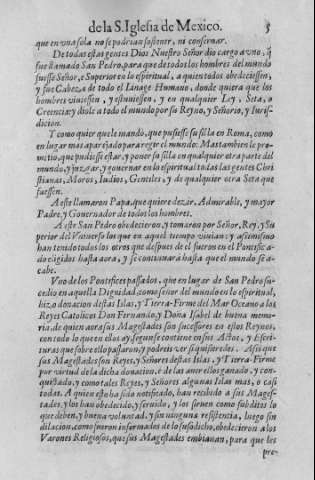 de la S. Iglesia de Mexico. 5
que en vna sola no se podrian sustener, ni conseruar.
De todas estas gentes Dios Nuestro Señor dio cargo a vno, q̃
fue llamado San Pedro, para que de todos los hombres del mundo
fuesse Señor, e Superior en lo espiritual, a quien todos obedeciessen,
y fue Cabeza de todo el Linage Humano, donde quiera que los
hombres viuiessen, y estuuiessen, y en qualquier Ley, Seta, o
Creencia: y diole a todo el mundo por su Reyno, y Señorio, y Iuris-
dicion.
Y como quier que le mando, que pusiesse su silla en Roma, como
en lugar mas aparejado para regir el mundo: Mas tambien le pro-
metio, que pudiesse estar, y poner su silla en qualquier otra parte del
mundo, y juzgar, y gouernar en lo espiritual todas las gentes Chri
stianas, Moros, Iudios, Gentiles, y de qualquier otra Seta que
fuessen.
A este llamaron Papa, que quiere dezir, Admirable, y mayor
Padre, y Gouernador de todos los hombres.
A este San Pedro obedecieron, y tomaron por Señor, Rey, y Su-
perior del Vniuerso los que en aquel tiempo viuian: y assimismo
han tenido todos los otros que despues de el fueron en el Pontifica-
do eligidos hasta aora, y se continuará hasta que el mundo se a-
cabe.
Vno de los Pontifices passados, que en lugar de San Pedro su-
cedio en aquella Dignidad, como señor del mundo en lo espiritual,
hizo donacion destas Islas, y Tierra-Firme del Mar Oceano a los
Reyes Catolicos Don Fernando, y Doña Isabel de buena memo-
ria, de quien aora sus Magestades son sucessores en estos Reynos,
con todo lo que en ellos ay, segun se contiene en sus Actos, y Escri-
turas que sobre ello passaron, y podreis ver si quisieredes. Assi que
sus Magestades son Reyes, y Señores destas Islas, y Tierra-Firme
por virtud de la dicha donacion, è de las auer ellos ganado, y con-
quistado, y como tales Reyes, y Señores algunas Islas mas, o casi
todas. A quien esto ha sido notificado, han recibido a sus Mages-
tades, y los han obedecido, y seruido, y los siruen como subditos lo
que deben, y buena voluntad, y sin ninguna resistencia, luego sin
dilacion, como fueron informados de lo susodicho, obedecieron a los
Varones Religiosos, que sus Magestades embiauan, para que les
pre-